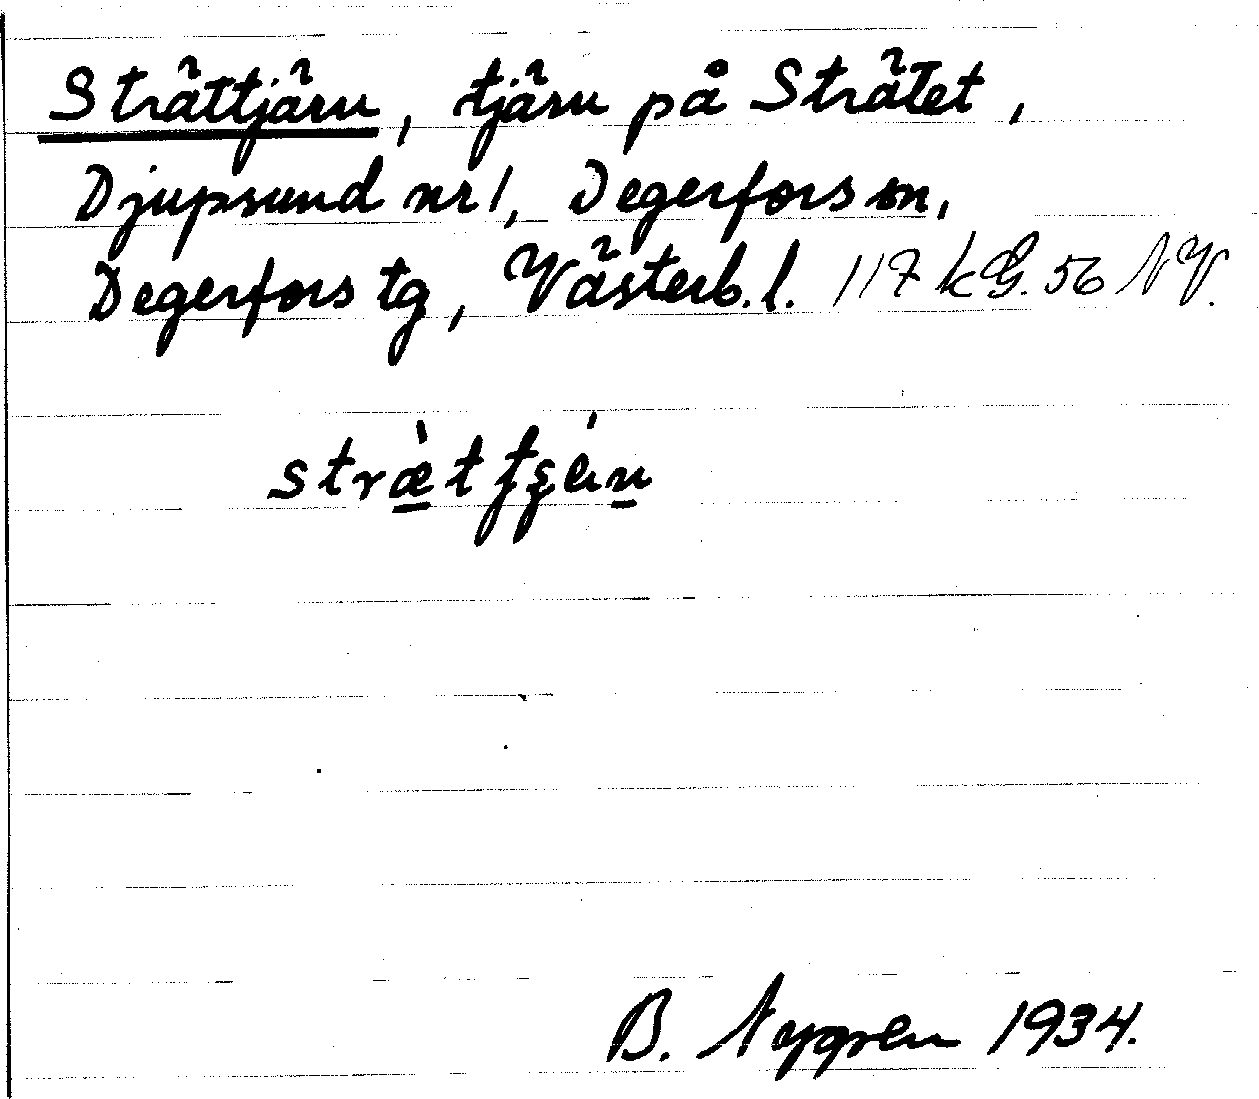 Strättjärn, tjärn på Strätet,
Djupsund nr 1, Degerfors sn,
Degerfors tg, Västerb. l. 117 kG. 56 NV.
B. Nygren 1934.